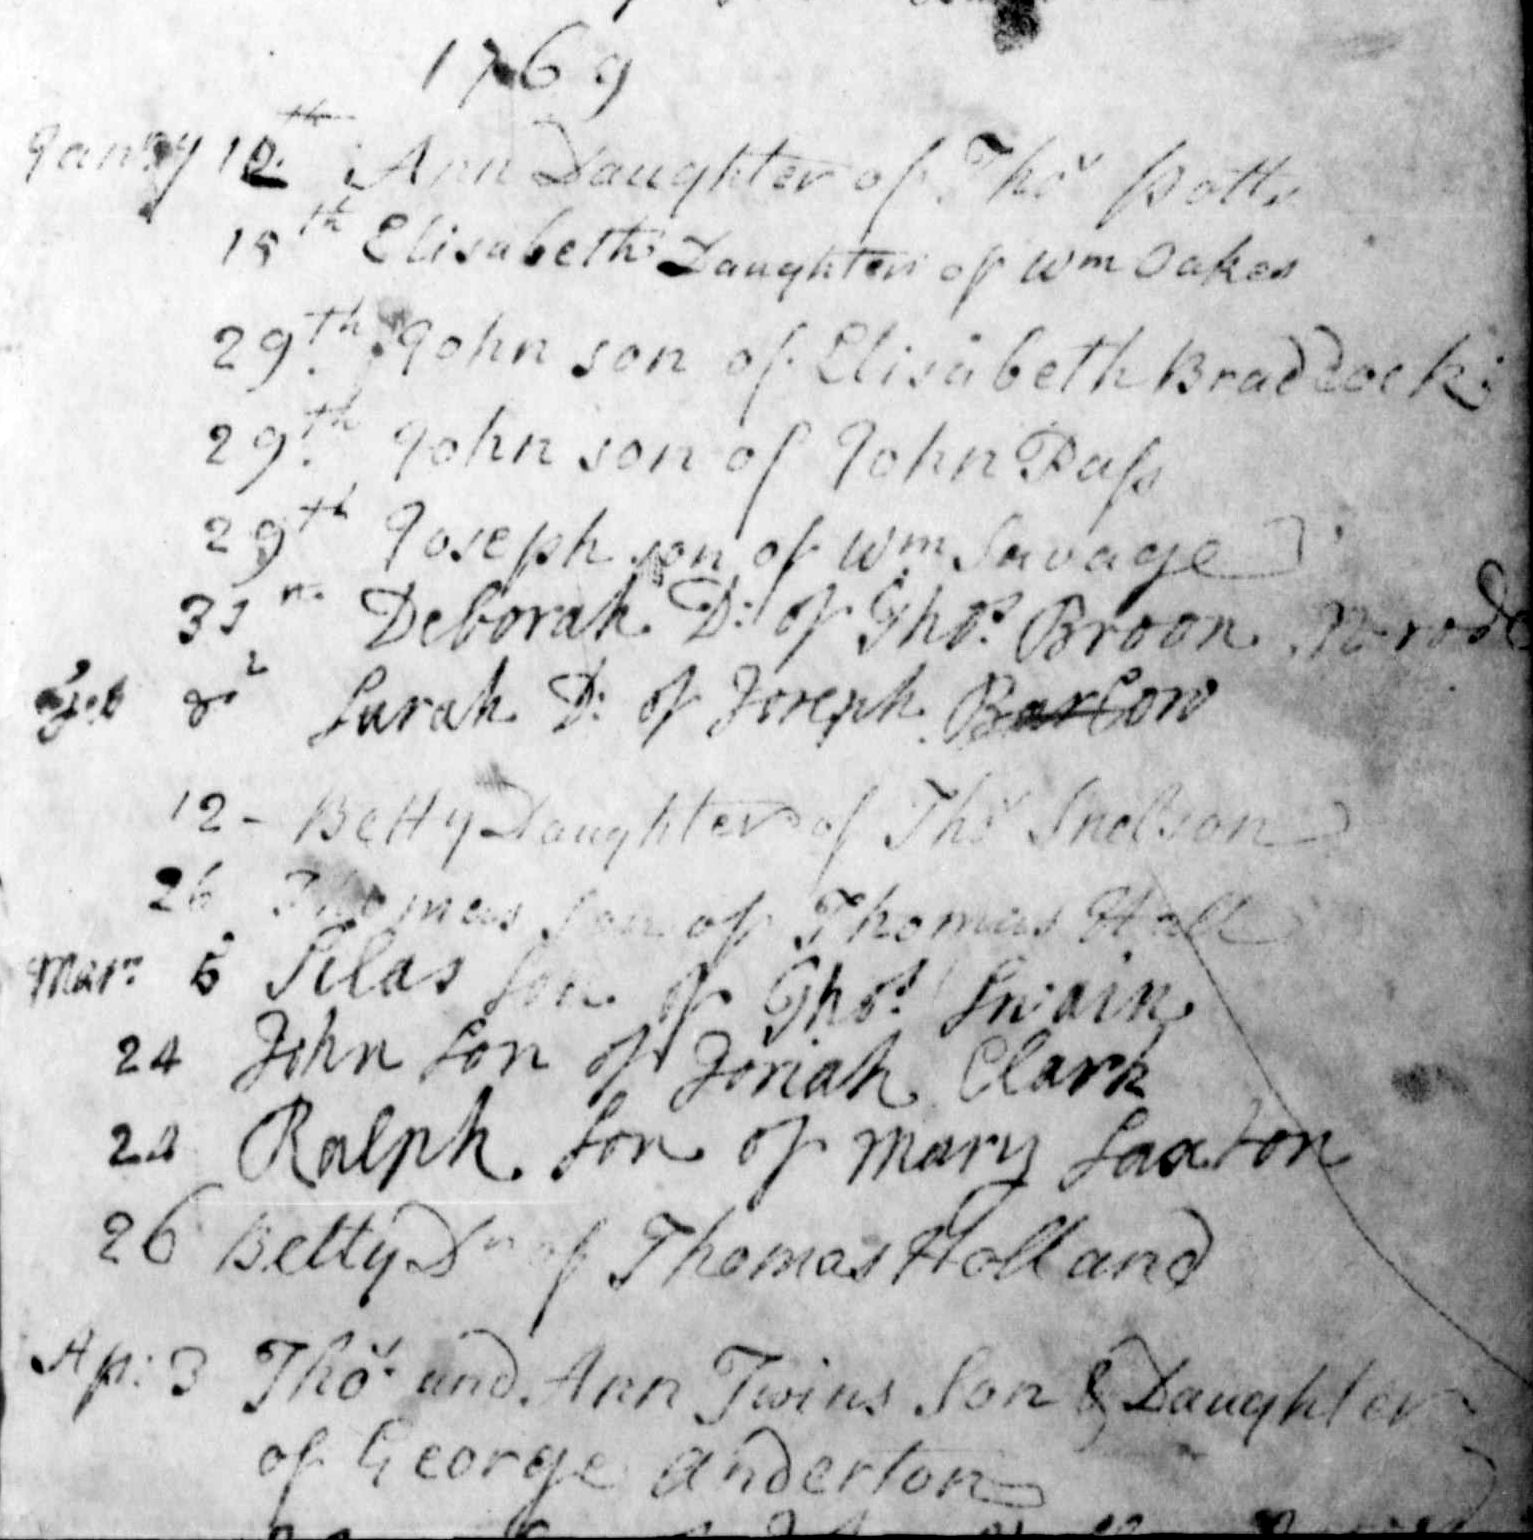 1769
Janry 10th Ann Daughter of Thos potts
15th Elisabeth Daughter of Wm Oakes
29th John son of Elisabeth Braddock
29th John son of John Pass
29th Joseph son of Wm Savage
31 Deborah D: of Thos. Broon
Feb 2 Sarah D: of Joseph Barlow
12 - Betty Daughter of Thos Snelson
26 Thomas Son of Thomas Hall
Mar: 5 Silas Son of Thos. Swain
24 John Son of Josiah Clark
24 Ralph Son of Mary Saxton
26 Betty Dr of Thomas Holland
Ap: 3 Thos. and Ann Twins Son & Daughter
of George Anderton